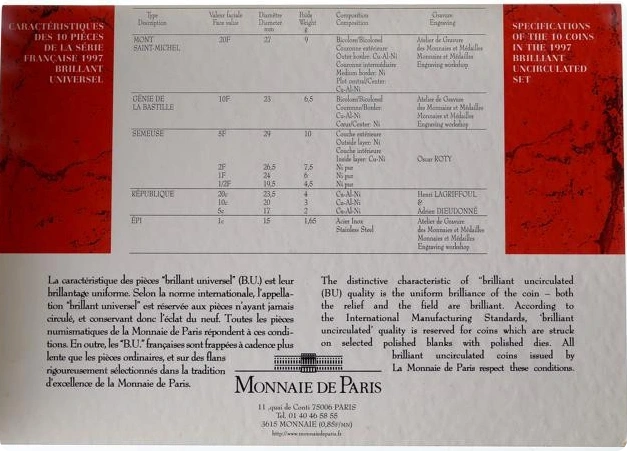 CARACTÉRISTIQUES
DES 10 PIÈCES
DE LA SÉRIE
FRANÇAISE 1997
BRILLANT
UNIVERSEL
Type Valeur faciale Diamètre Poids Composition Gravure
Description Face value Diameter Weight Composition Engraving
mm g
MONT 20F 27 9 Bicolore/Bicolored Atelier de Gravure
SAINT-MICHEL Couronne extérieure des Monnaies et Médailles
Outer border: Cu-Al-Ni Monnaies et Médailles
Couronne intermédiaire Engraving workshop
Medium border: Ni
Plot central/Center:
Cu-Al-Ni
GÉNIE DE 10F 23 6,5 Bicolore/Bicolored Atelier de Gravure
LA BASTILLE Couronne/Border: des Monnaies et Médailles
Cu-Al-Ni Monnaies et Médailles
Cœur/Center: Ni Engraving workshop
SEMEUSE 5F 29 10 Couche extérieure
Outside layer: Ni
Couche intérieure
Inside layer: Cu-Ni Oscar ROTY
2F 26,5 7,5 Ni pur
1F 24 6 Ni pur
1/2F 19,5 4,5 Ni pur
RÉPUBLIQUE 20c 23,5 4 Cu-Al-Ni Henri LAGRIFFOUL
10c 20 3 Cu-Al-Ni &
5c 17 2 Cu-Al-Ni Adrien DIEUDONNÉ
ÉPI 1c 15 1,65 Acier Inox Atelier de Gravure
Stainless Steel des Monnaies et Médailles
Monnaies et Médailles
Engraving workshop
SPECIFICATIONS
OF THE 10 COINS
IN THE 1997
BRILLIANT
UNCIRCULATED
SET
La caractéristique des pièces "brillant universel" (B.U.) est leur
brillantage uniforme. Selon la norme internationale, l'appella-
tion "brillant universel" est réservée aux pièces n'ayant jamais
circulé, et conservant donc l'éclat du neuf. Toutes les pièces
numismatiques de la Monnaie de Paris répondent à ces condi-
tions. En outre, les "B.U." françaises sont frappées à cadence plus
lente que les pièces ordinaires, et sur des flans
rigoureusement sélectionnés dans la tradition
d'excellence de la Monnaie de Paris.
The distinctive characteristic of "brilliant uncirculated
(BU) quality is the uniform brilliance of the coin – both
the relief and the field are brilliant. According to
the International Manufacturing Standards, 'brilliant
uncirculated' quality is reserved for coins which are struck
on selected polished blanks with polished dies. All
brilliant uncirculated coins issued by
La Monnaie de Paris respect these conditions.
MONNAIE DE PARIS
11 ,quai de Conti 75006 PARIS
Tel. 01 40 46 58 55
3615 MONNAIE (0,85F/MN)
http://www.monnaiedeparis.fr